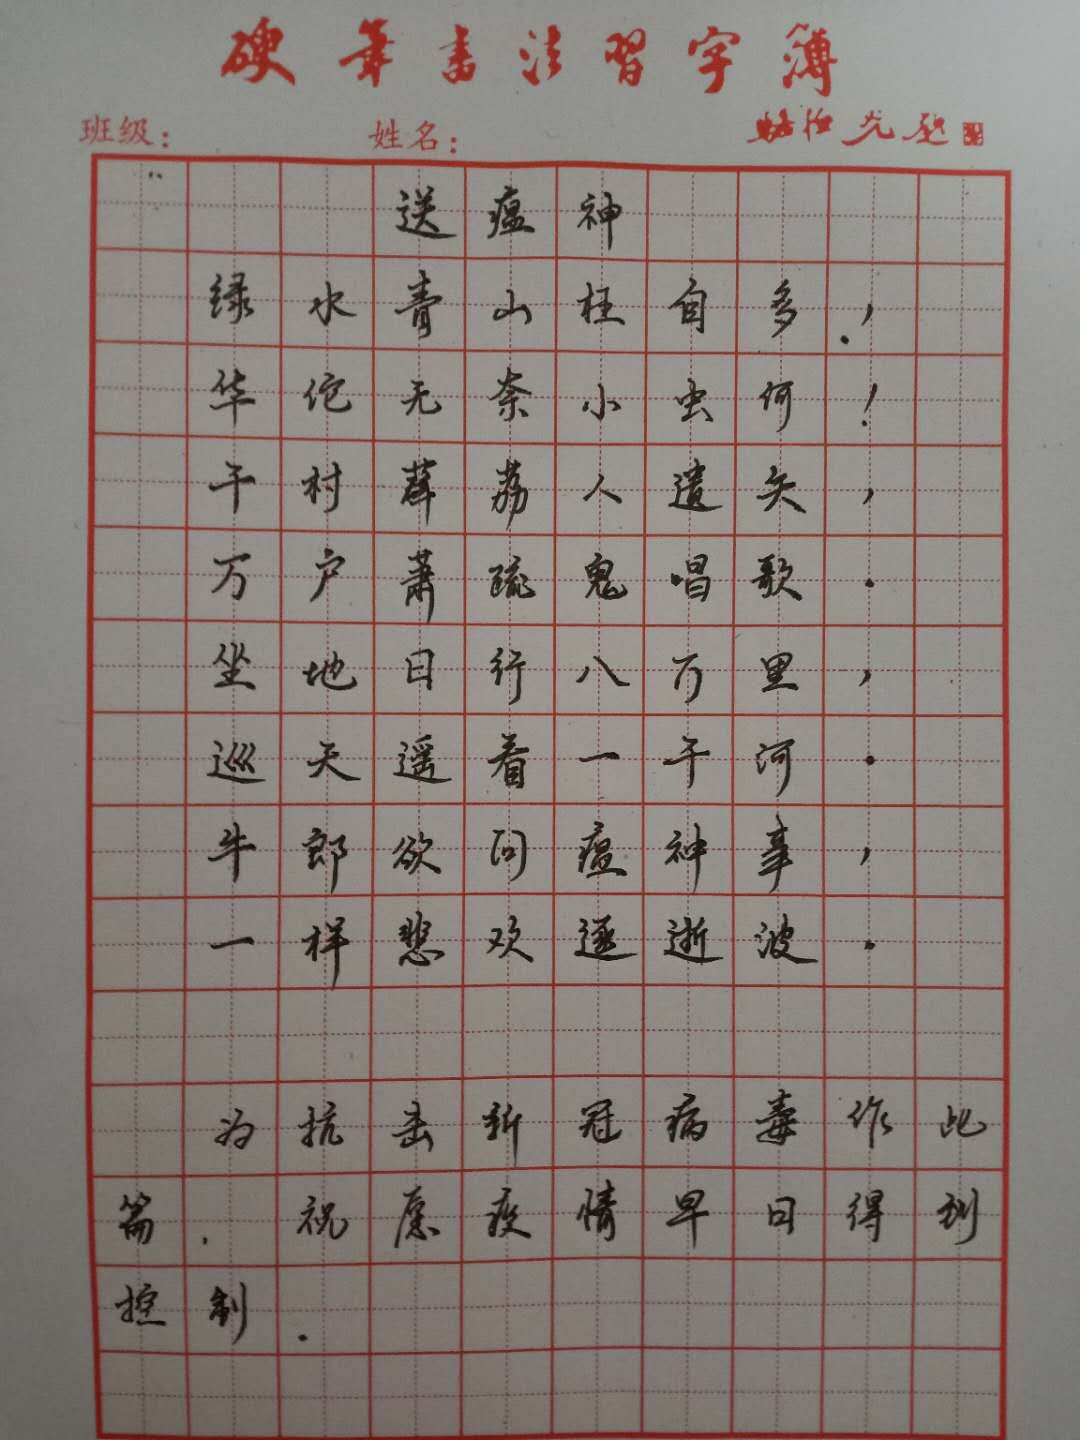 硬筆書法習字簿
班级： 姓名：
送瘟神
绿水青山枉自多，
华佗无奈小虫何！
千村薜荔人遗矢，
万户萧疏鬼唱歌.
坐地日行八万里，
巡天遥看一千河.
牛郎欲问瘟神事，
一样悲欢逐逝波.
为抗击新冠病毒作此
篇.祝愿疫情早日得到
控制.